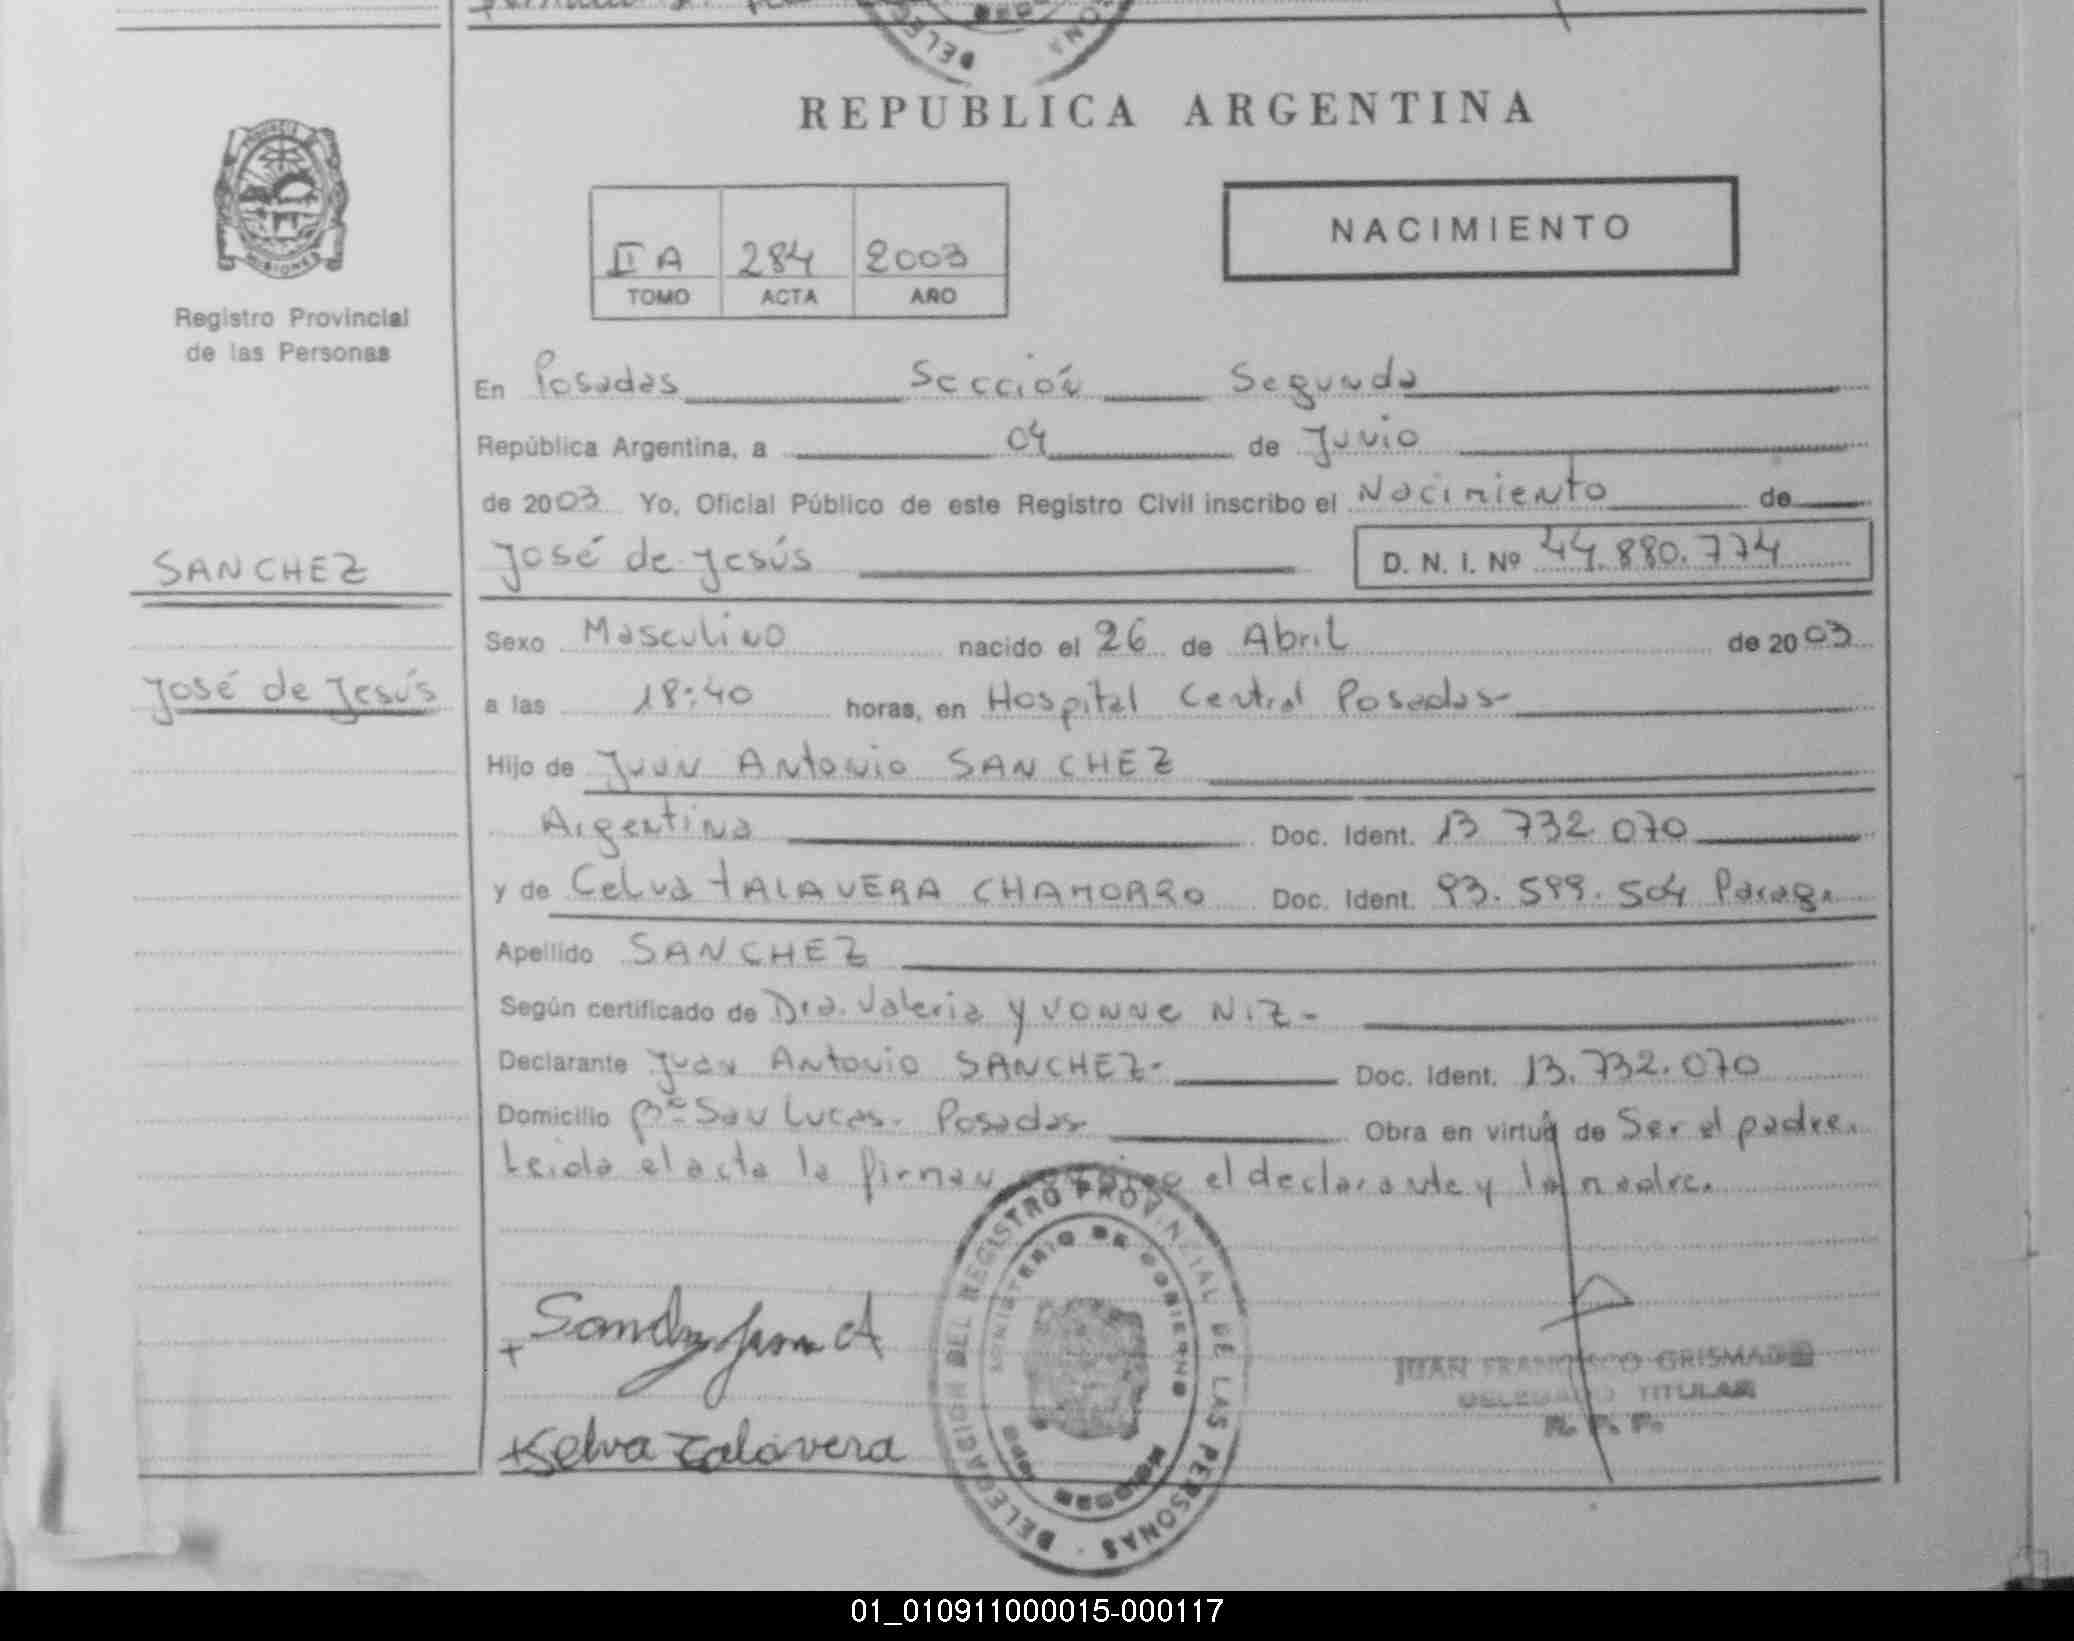 REPUBLICA ARGENTINA
NACIMIENTO
II A 284 2003
TOMO ACTA AÑO
MISIONES
Registro Provincial
de las Personas
En Posadas Sección Segunda
República Argentina, a 04 de Junio
de 2003 Yo, Oficial Público de este Registro Civil inscribo el Nacimiento de
SANCHEZ
José de Jesús
José de Jesús D. N. I. Nº 44.880.774
Sexo Masculino nacido el 26 de Abril de 2003
a las 18:40 horas, en Hospital Central Posadas-
Hijo de Juan Antonio SANCHEZ
Argentina Doc. Ident. 13 732.070
y de Celva TALAVERA CHAMORRO Doc. Ident. 93.599.504 Parag.
Apellido SANCHEZ
Según certificado de Dra. Valeria Yvonne Niz-
Declarante Juan Antonio SANCHEZ- Doc. Ident. 13.732.070
Domicilio Bº San Lucas- Posadas Obra en virtud de Ser el padre.
Leida el acta la firman el declarante y la madre.
DELEGACION DEL REGISTRO PROVINCIAL DE LAS PERSONAS
MINISTERIO DE GOBIERNO
Selva Talavera
JUAN FRANCISCO GRISMADO
DELEGADO TITULAR
R. P. P.
01_010911000015-000117